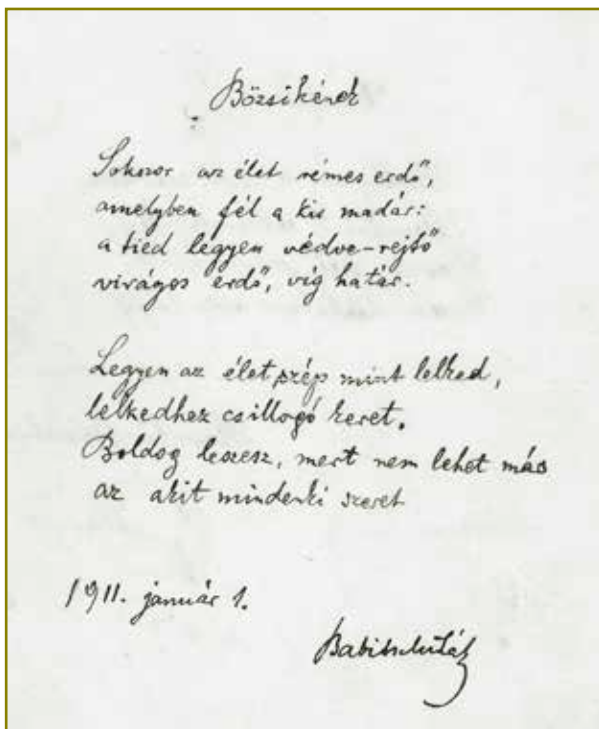 Bözsikének
Sokszor az élet rémes erdő,
amelyben fél a kis madár:
a tied legyen védve-rejtő
virágos erdő, víg határ.
Legyen az élet szép mint lelked,
lelkedhez csillogó keret.
Boldog leszesz, mert nem lehet más
az akit mindenki szeret
1911. január 1.
Babits Mihály